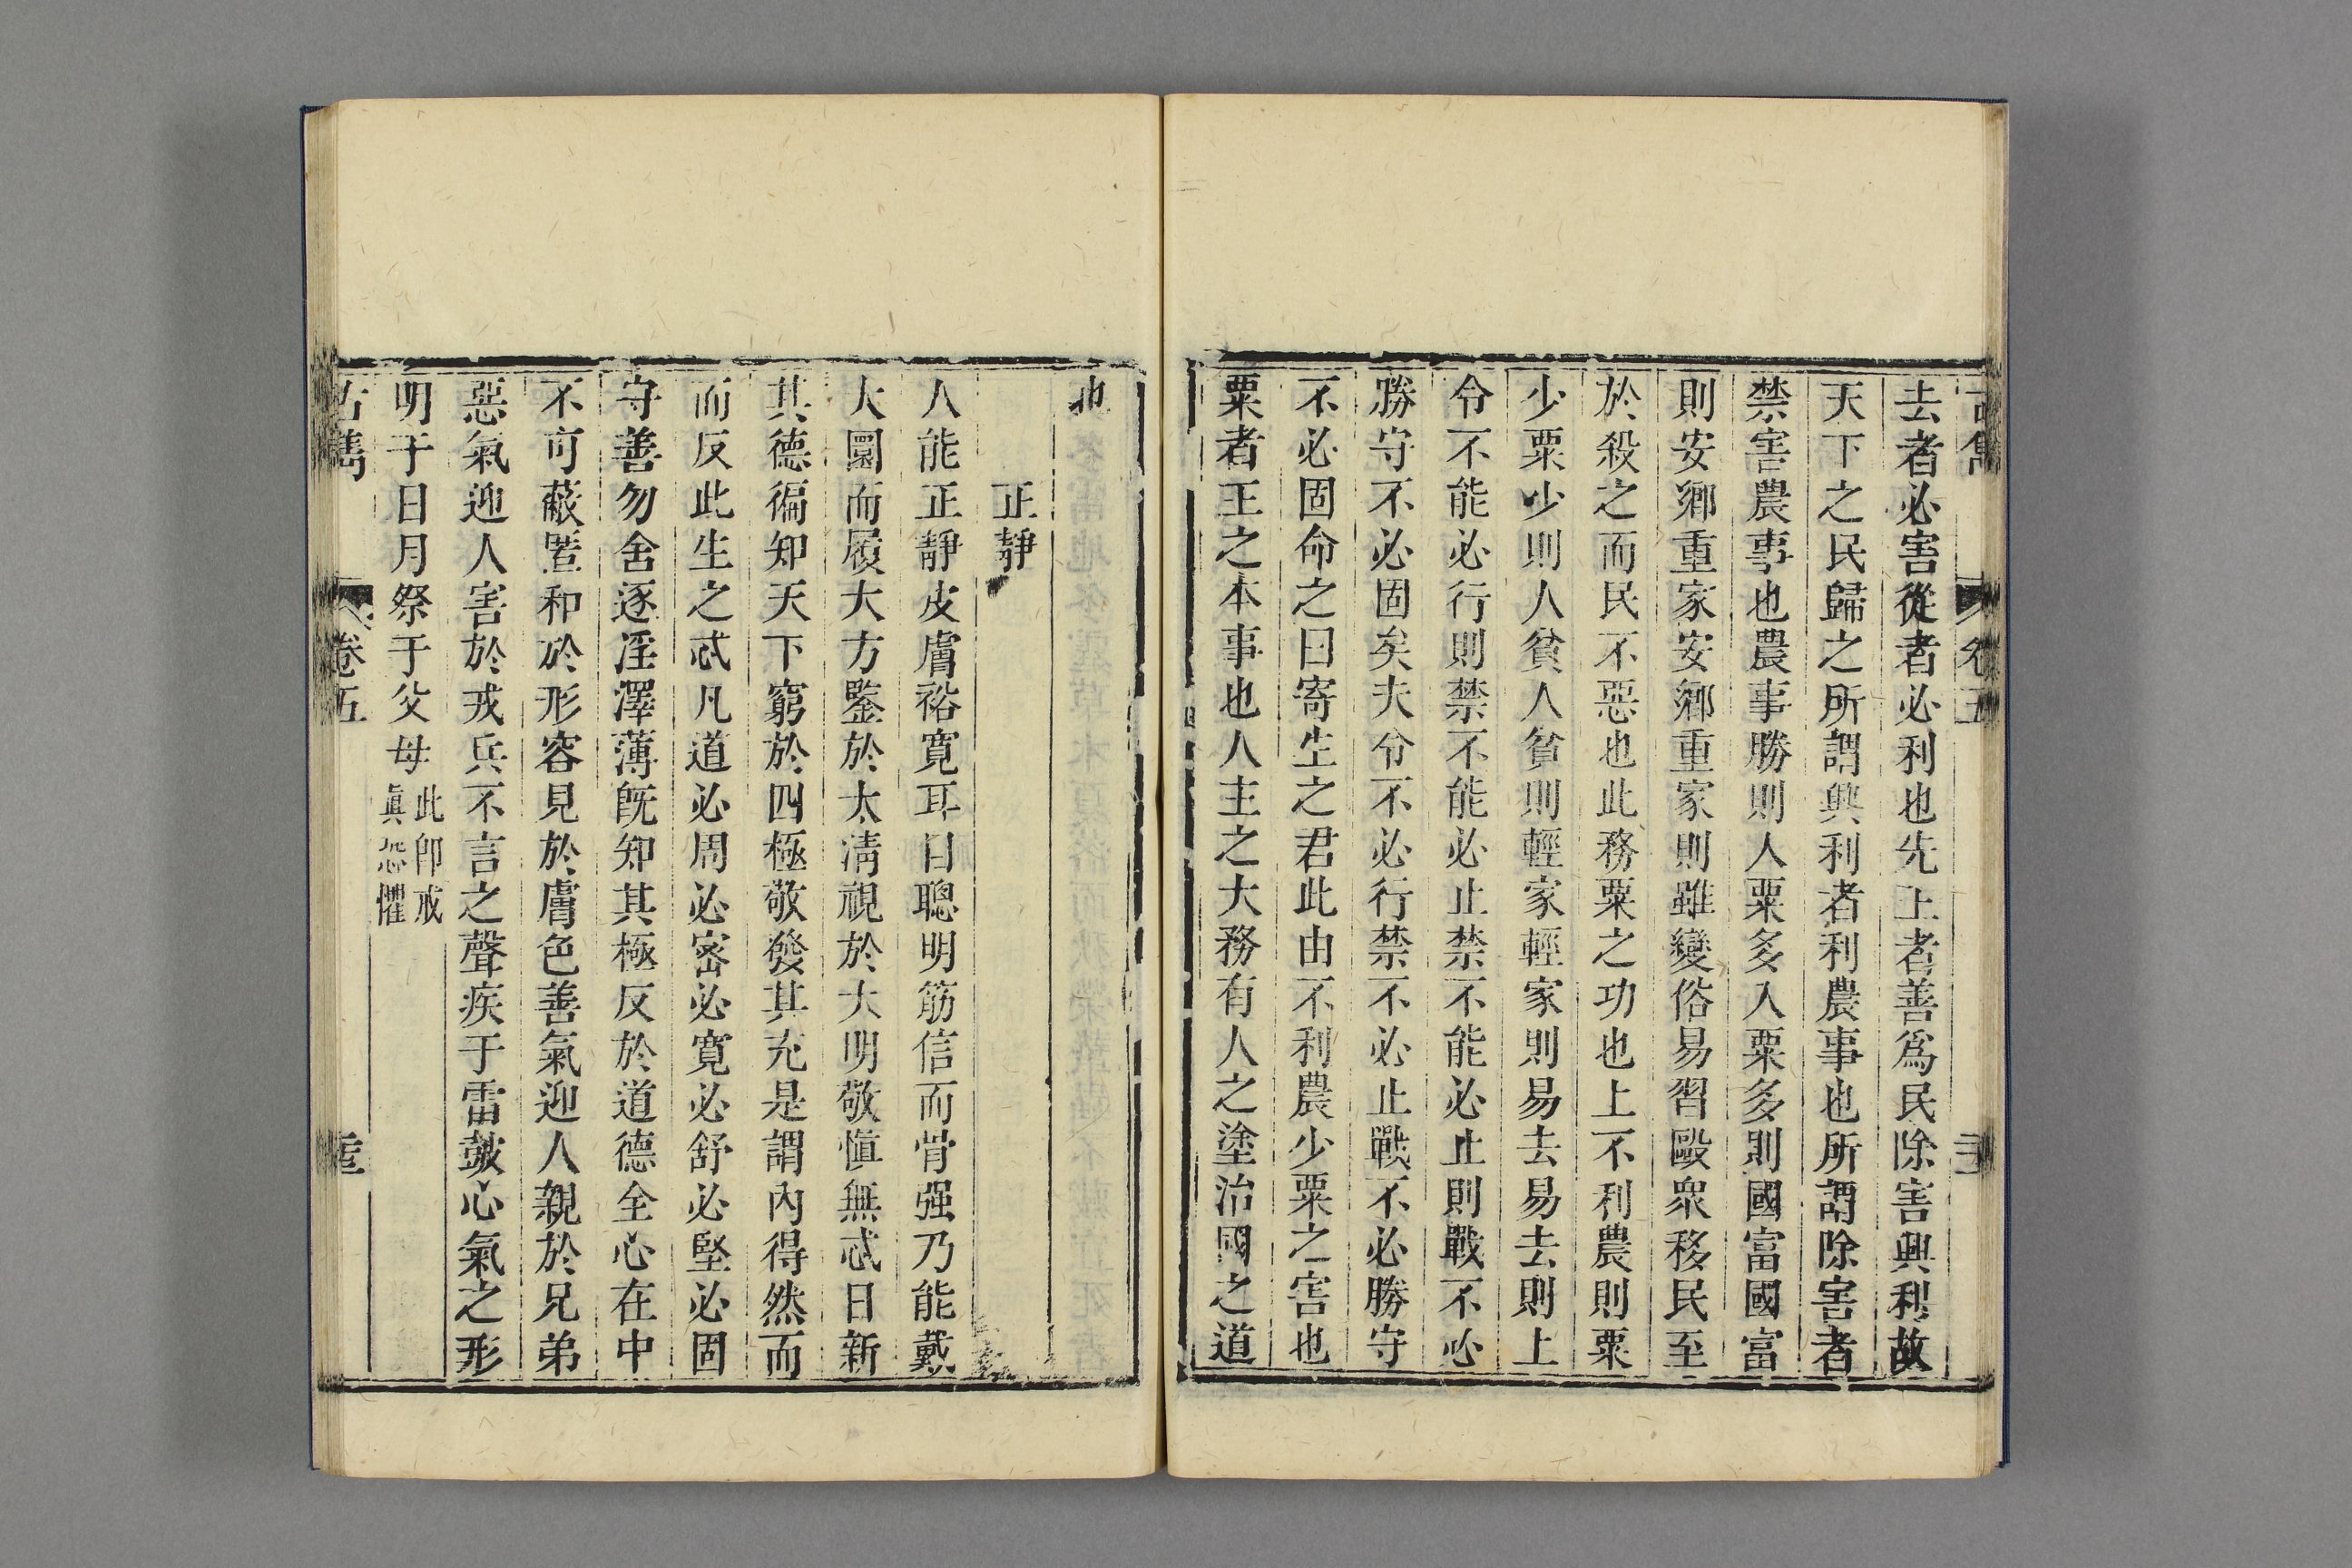 去者必害從者必利也先王者善爲民除害興利故
天下之民歸之所謂興利者利農事也所謂除害者
禁害農事也農事勝則人粟多入粟多則國富國富
則安鄉重家安鄉重家則雖變俗易習毆衆移民至
於殺之而民不惡也此務粟之功也上不利農則粟
少粟少則人貧人貧則輕家輕家則易去易去則上
令不能必行則禁不能必止禁不能必止則戰不必
勝守不必固矣夫令不必行禁不必止戰不必勝守
不必固命之曰寄生之君此由不利農少粟之害也
粟者王之本事也人主之大務有人之塗治國之道
也
正靜
人能正靜皮膚裕寬耳目聰明筋信而骨强乃能戴
大圜而履大方鑒於太淸視於大明敬愼無忒日新
其德徧知天下窮於四極敬發其充是謂內得然而
而反此生之忒凡道必周必密必寬必舒必堅必固
守善勿舍逐淫澤薄旣知其極反於道德全心在中
不可蔽匿和於形容見於膚色善氣迎人親於兄弟
惡氣迎人害於戎兵不言之聲疾于雷皷心氣之形
明于日月祭于父母
此卽戒
眞恐懼
古雋
卷五